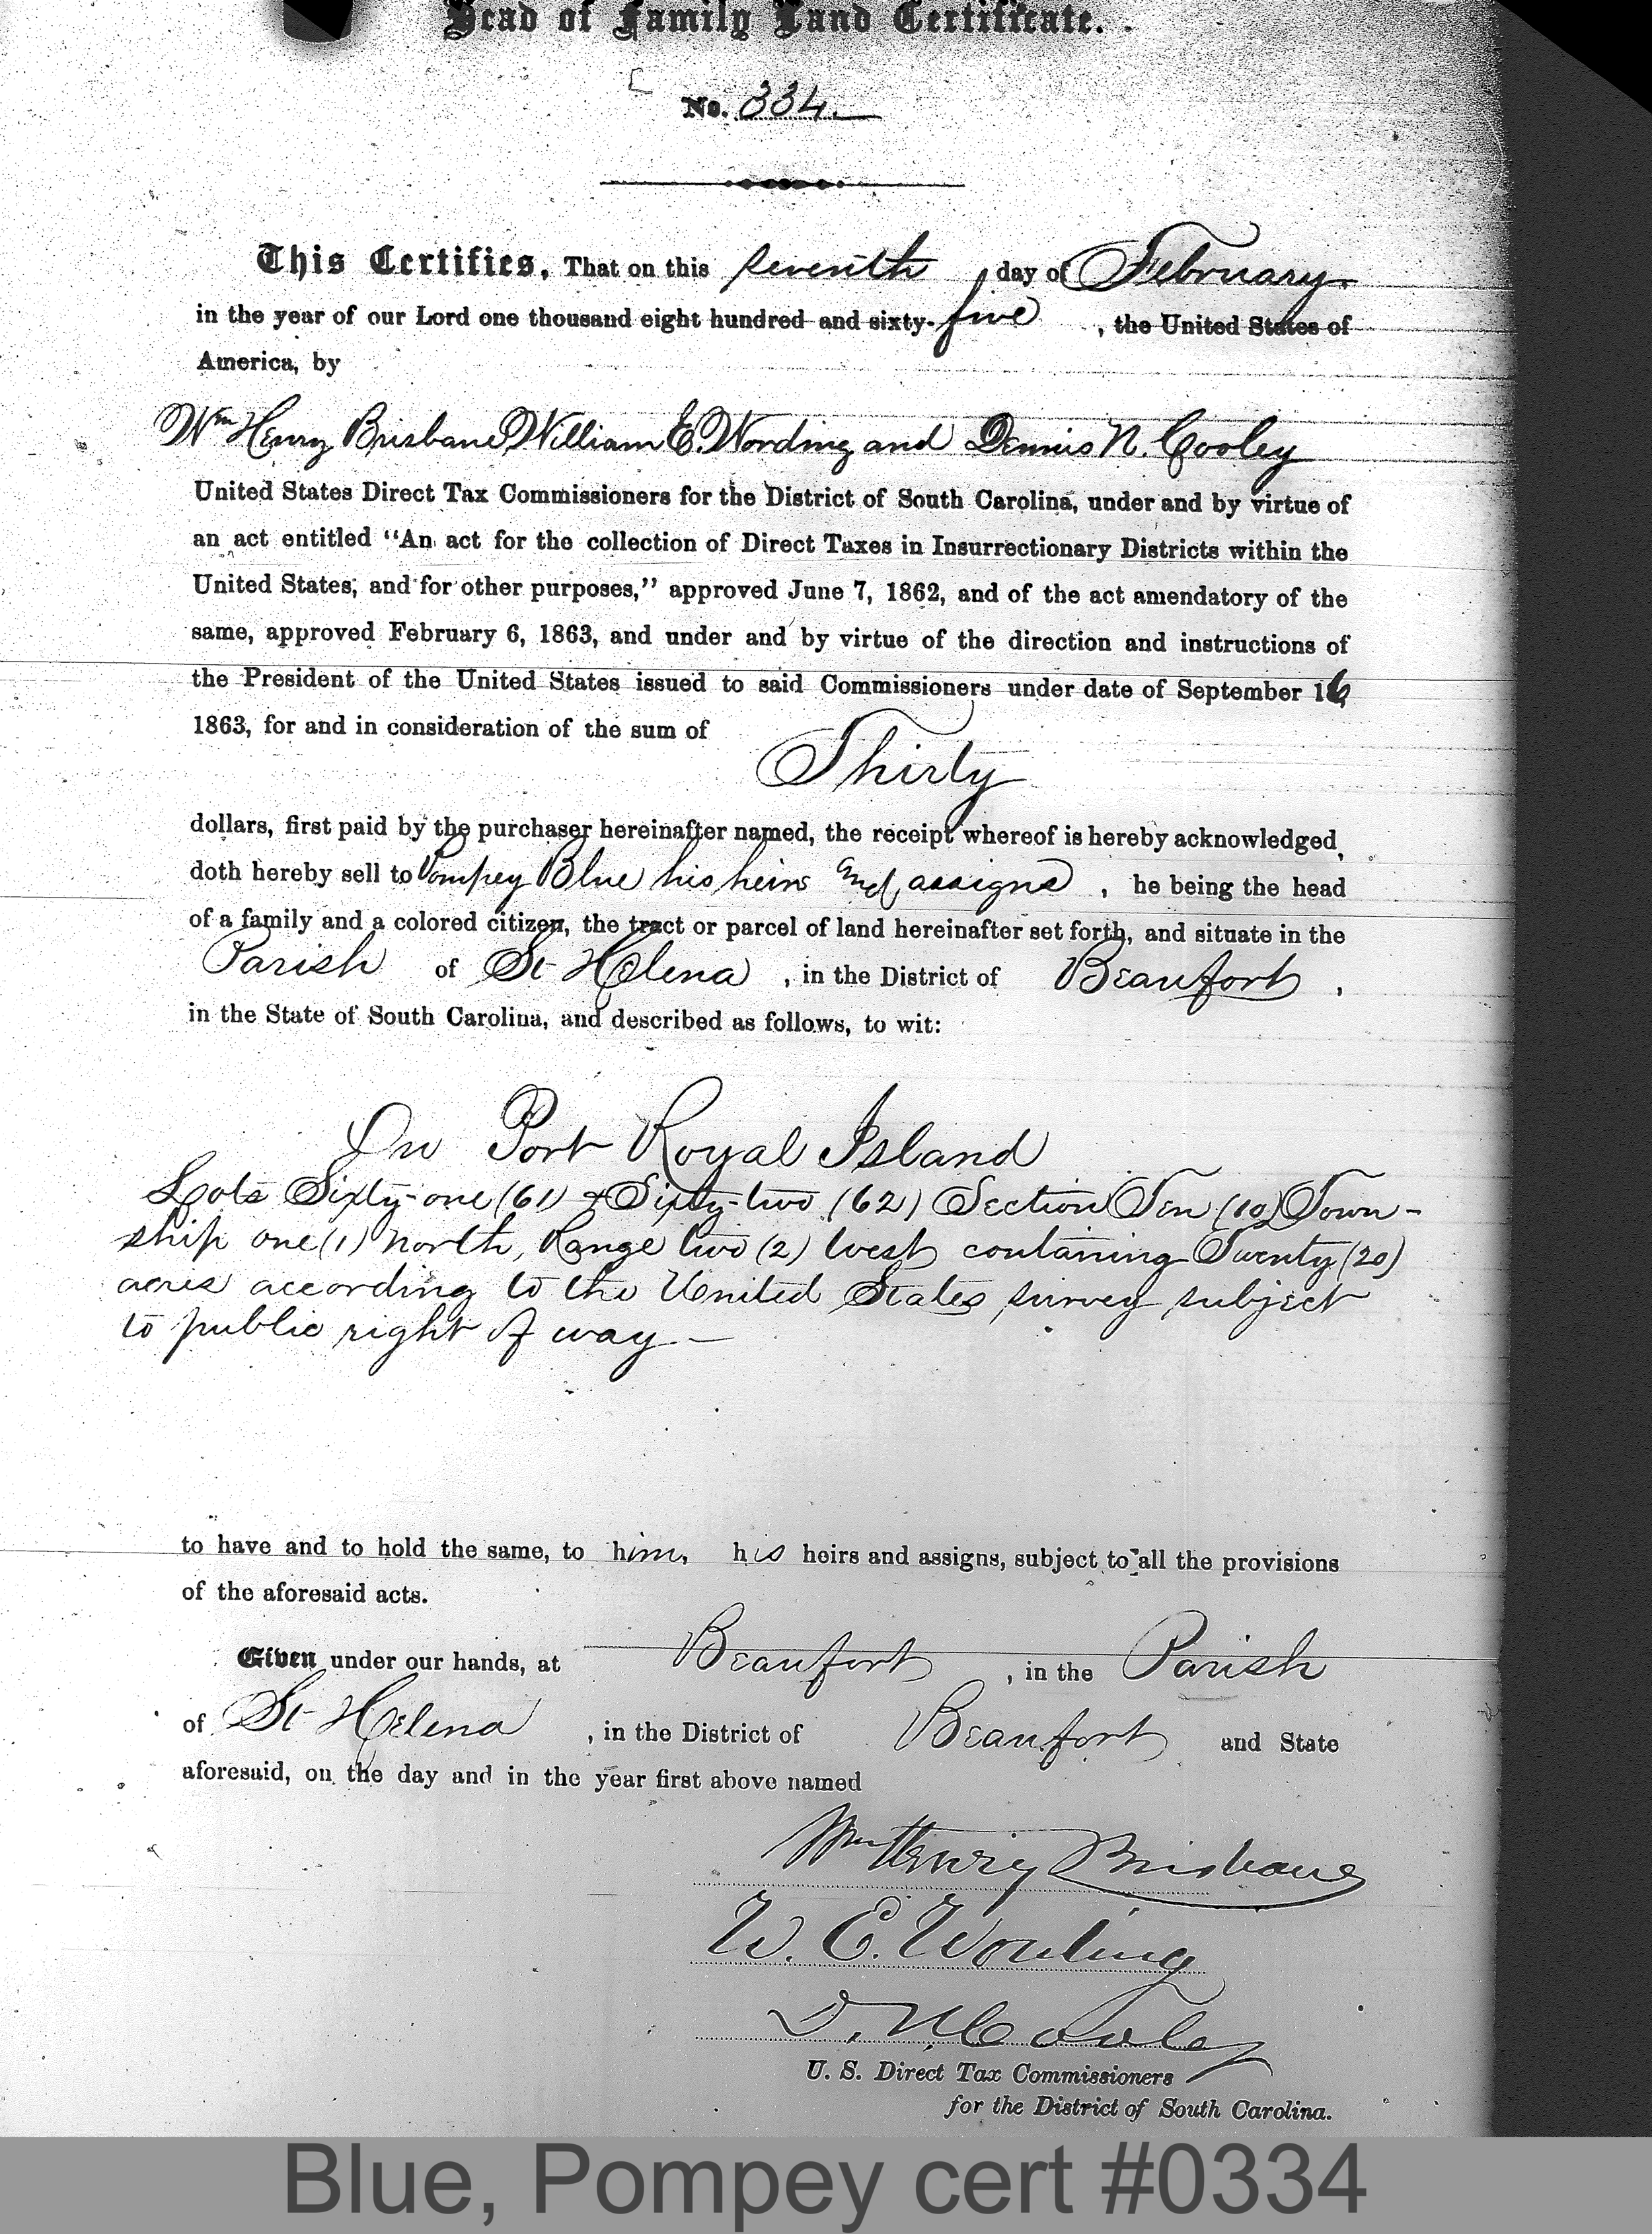 Head of Family Land Certificate.
No. 334.
This Certifies, That on this seventh day of February
in the year of our Lord one thousand eight hundred and sixty-five, the United States of
America, by
Wm Henry Brisbane, William E. Wording and Dennis N. Cooley
United States Direct Tax Commissioners for the District of South Carolina, under and by virtue of
an act entitled "An act for the collection of Direct Taxes in Insurrectionary Districts within the
United States, and for other purposes," approved June 7, 1862, and of the act amendatory of the
same, approved February 6, 1863, and under and by virtue of the direction and instructions of
the President of the United States issued to said Commissioners under date of September 16
1863, for and in consideration of the sum of
Thirty
dollars, first paid by the purchaser hereinafter named, the receipt whereof is hereby acknowledged,
doth hereby sell to Pompey Blue his heirs and assigns, he being the head
of a family and a colored citizen, the tract or parcel of land hereinafter set forth, and situate in the
Parish of St Helena, in the District of Beaufort,
in the State of South Carolina, and described as follows, to wit:
On Port Royal Island
Lots Sixty-one (61) & Sixty-two (62) Section Ten (10) Town-
ship one (1) north, Range two (2) west containing Twenty (20)
acres according to the United States survey subject
to public right of way —
to have and to hold the same, to him, his heirs and assigns, subject to all the provisions
of the aforesaid acts.
Given under our hands, at Beaufort, in the Parish
of St Helena, in the District of Beaufort and State
aforesaid, on the day and in the year first above named
Wm Henry Brisbane
W. E. Wording
D. N. Cooley
U. S. Direct Tax Commissioners
for the District of South Carolina.
Blue, Pompey cert #0334